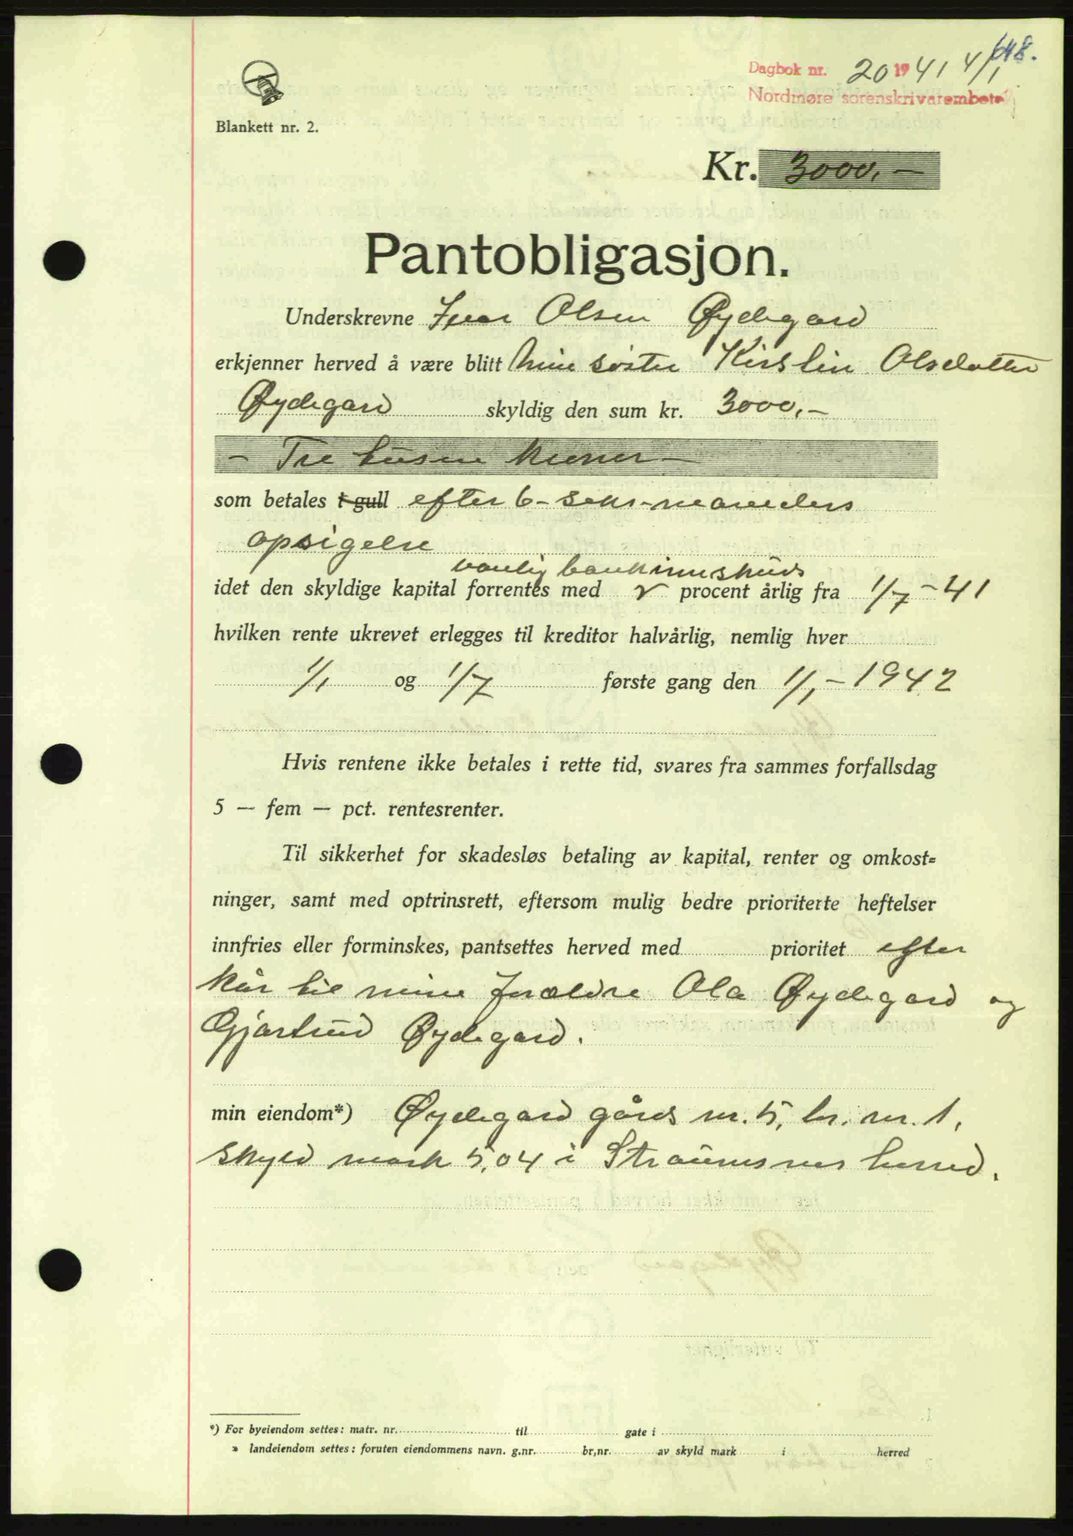 648.
Dagbok nr. 20 1941 4/1
Nordmøre sorenskrivarembete
Blankett nr. 2.
Kr. 3000,-
Pantobligasjon.
Underskrevne Ivar Olsen Øydegard
erkjenner herved å være blitt min søster Kirstin Olsdatter
Øydegard skyldig den sum kr. 3000,-
- Tre tusen kroner -
som betales i gull efter 6- seks- maaneders
opsigelse
vanlig bankinnskuds
idet den skyldige kapital forrentes med procent årlig fra 1/7 - 41
hvilken rente ukrevet erlegges til kreditor halvårlig, nemlig hver
1/1 og 1/7 første gang den 1/1 - 1942
Hvis rentene ikke betales i rette tid, svares fra sammes forfallsdag
5 — fem — pct. rentesrenter.
Til sikkerhet for skadesløs betaling av kapital, renter og omkost=
ninger, samt med optrinsrett, eftersom mulig bedre prioriterte heftelser
innfries eller forminskes, pantsettes herved med prioritet efter
kår til mine foreldre Ola Øydegard og
Gjartrud Øydegard.
min eiendom*) Øydegard gårds nr. 5, br. nr. 1,
skyld mark 5,04 i Straumsnes herred.
*) For byeiendom settes: matr. nr. til gate i
» landeiendom settes: foruten eiendommens navn. g.nr. br.nr. av skyld mark i herred